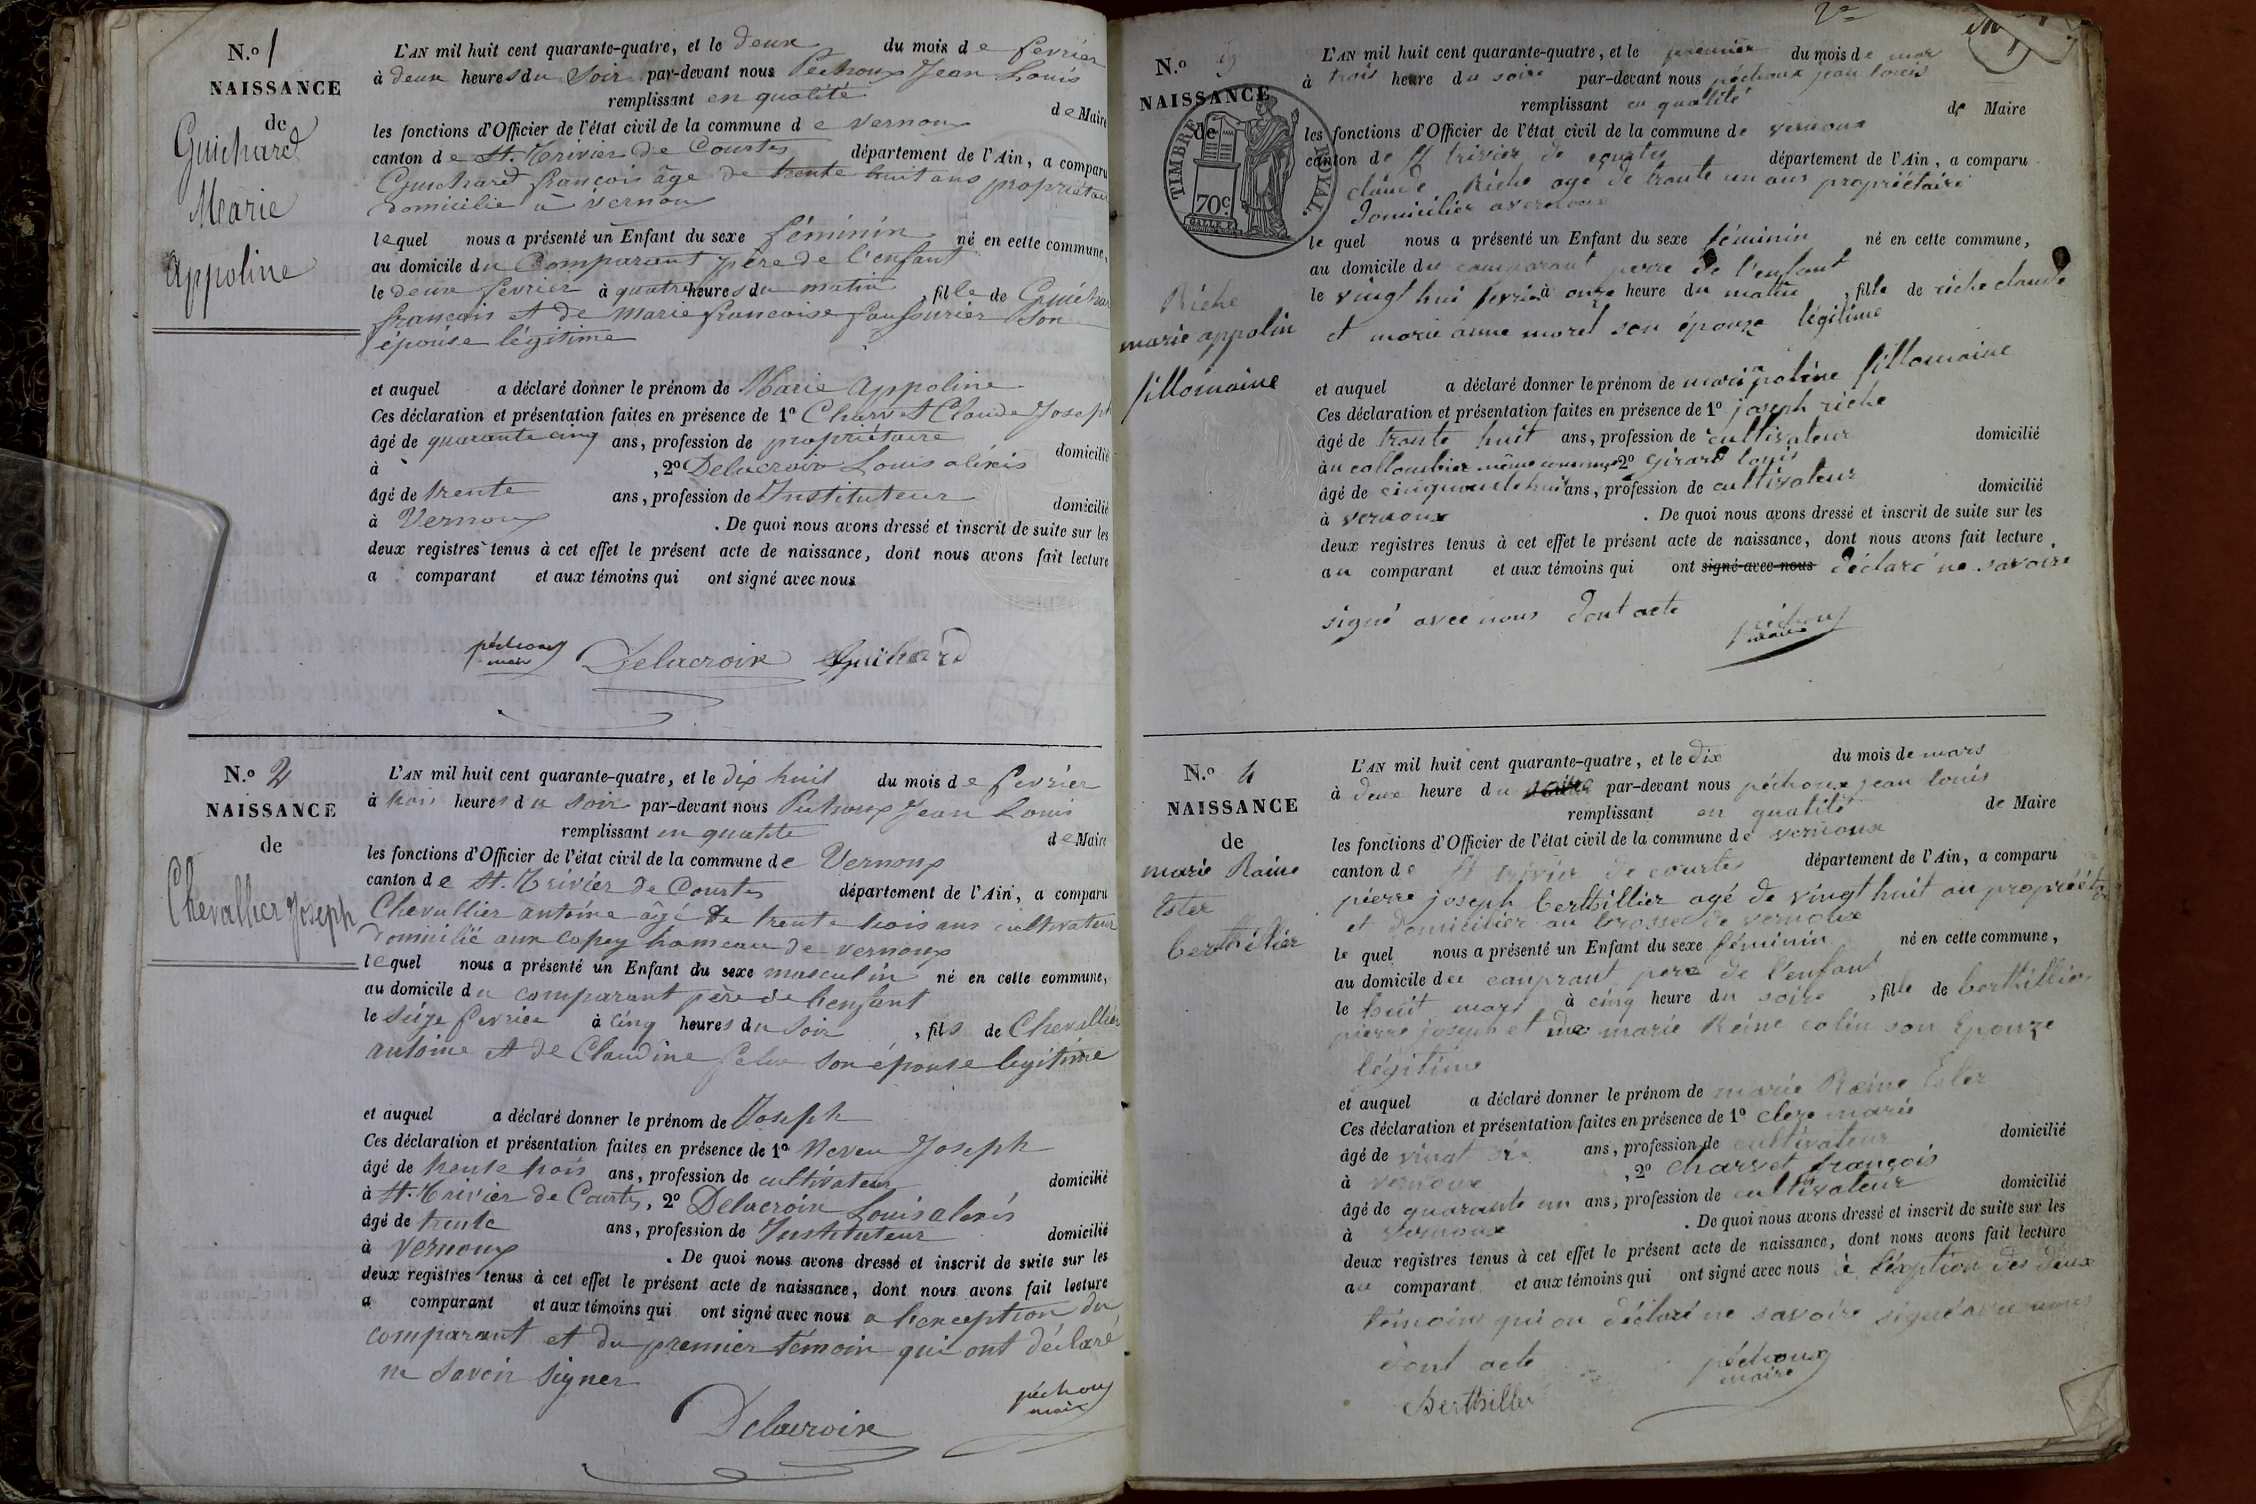 N.o 1
NAISSANCE
de
Guichard
Marie
Appoline
L'AN mil huit cent quarante-quatre, et le deux du mois de fevrier
à deux heures du Soir par-devant nous Pechoux Jean Louis
remplissant en qualité de Maire
les fonctions d'Officier de l'état civil de la commune de vernoux
canton de St. Trivier de Courtes département de l'Ain, a comparu
Guichard françois âge de trente huit ans propriétaire
domicilié à vernoux
lequel nous a présenté un Enfant du sexe féminin né en cette commune,
au domicile du Comparant père de l'enfant
le deux fevrier à quatre heures du matin, fille de Guichard
françois et de marie francoise son
épouse légitime
et auquel a déclaré donner le prénom de Marie Appoline
Ces déclaration et présentation faites en présence de 1o Charvet Claude Joseph
âgé de quarante cinq ans, profession de propriétaire domicilié
à , 2o Delacroix Louis alexis
âgé de trente ans, profession de Instituteur domicilié
à Vernoux . De quoi nous avons dressé et inscrit de suite sur les
deux registres tenus à cet effet le présent acte de naissance, dont nous avons fait lecture
a comparant et aux témoins qui ont signé avec nous
péchoux Delacroix Guichard
maire
N.o 2
NAISSANCE
de
Chevallier Joseph
L'AN mil huit cent quarante-quatre, et le dix huit du mois de fevrier
à trois heures du soir par-devant nous Pechoux Jean Louis
remplissant en qualité de Maire
les fonctions d'Officier de l'état civil de la commune de Vernoux
canton de St. Trivier de Courtes département de l'Ain, a comparu
Chevallier antoine âgé de trente trois ans cultivateur
domicilié aux copey hameau de vernoux
lequel nous a présenté un Enfant du sexe masculin né en cette commune,
au domicile du comparant père de l'enfant
le seize fevrier à cinq heures du soir, fils de Chevallier
antoine et de Claudine son épouse legitime
et auquel a déclaré donner le prénom de Joseph
Ces déclaration et présentation faites en présence de 1o Neveu Joseph
âgé de trente trois ans, profession de cultivateur domicilié
à St. Trivier de Courtes, 2o Delacroix Louis alexis
âgé de trente ans, profession de Instituteur domicilié
à Vernoux . De quoi nous avons dressé et inscrit de suite sur les
deux registres tenus à cet effet le présent acte de naissance, dont nous avons fait lecture
a comparant et aux témoins qui ont signé avec nous a l'exception du
comparant et du premier témoin qui ont déclaré
ne savoir signer
Delacroix péchoux
maire
N.o 3
NAISSANCE
de
TIMBRE ROYAL
70c
Riche
marie appolin
fillomaine
L'AN mil huit cent quarante-quatre, et le premier du mois de mar
à trois heure du soire par-devant nous péchoux jean louis
remplissant en qualité de Maire
les fonctions d'Officier de l'état civil de la commune de vernoux
canton de St trivier de courtes département de l'Ain, a comparu
claude Riche agé de trante un ans propriétaire
domicilier a vernoux
le quel nous a présenté un Enfant du sexe féminin né en cette commune,
au domicile du comparant perre de l'enfant
le vingt hui fevrier à onze heure du matin, fille de riche claude
et marie anne morel son épouze légitime
et auquel a déclaré donner le prénom de mari apoline fillomaine
Ces déclaration et présentation faites en présence de 1o joseph riche
âgé de trante huit ans, profession de cultivateur domicilié
à au collombier même commune 2o Girard louis
âgé de cinquante huit ans, profession de cultivateur domicilié
à vernoux . De quoi nous avons dressé et inscrit de suite sur les
deux registres tenus à cet effet le présent acte de naissance, dont nous avons fait lecture
au comparant et aux témoins qui ont signé avec nous déclaré ne savoire
signé avec nous dont acte
péchoux
maire
N.o 4
NAISSANCE
de
marie Raine
Ester
berthilier
L'AN mil huit cent quarante-quatre, et le dix du mois de mars
à deux heure du par-devant nous péchoux jean louis
remplissant en qualité de Maire
les fonctions d'Officier de l'état civil de la commune de vernoux
canton de St trivier de courtes département de l'Ain, a comparu
pierre joseph berthillier agé de vingt huit an propriétaire
et domicilier au brosse de vernoux
le quel nous a présenté un Enfant du sexe féminin né en cette commune,
au domicile du comprant pere de l'enfant
le huit mars à cinq heure du soire, fille de berthillier
pierre joseph et de marie Reine colin son Epouze
légitime
et auquel a déclaré donner le prénom de marie Raine Ester
Ces déclaration et présentation faites en présence de 1o clerc marie
âgé de vingt ans, profession de cultivateur domicilié
à vernoux , 2o charvet françois
âgé de quarante un ans, profession de cultivateur domicilié
à vernoux . De quoi nous avons dressé et inscrit de suite sur les
deux registres tenus à cet effet le présent acte de naissance, dont nous avons fait lecture
au comparant et aux témoins qui ont signé avec nous à l'exption des deux
témoins qui on déclaré ne savoire signé avec nous
dont acte péchoux
maire
Berthillier